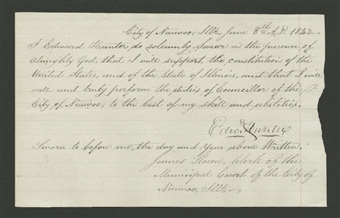 City of Nauvoo, Ills. June 8th A.D. 1843.
I Edward Hunter do solemnly swear in the presence of
Almighty God, that I will support the constitution of the
United States, and of the State of Illinois, and that I will
well and truly perform the duties of Councillor of the
City of Nauvoo, to the best of my skill and abilities.
Edwd Hunter
Sworn to before me, the day and year above Written.
James Sloan, Clerk of the
Municipal Court of the City of
Nauvoo, Ills.